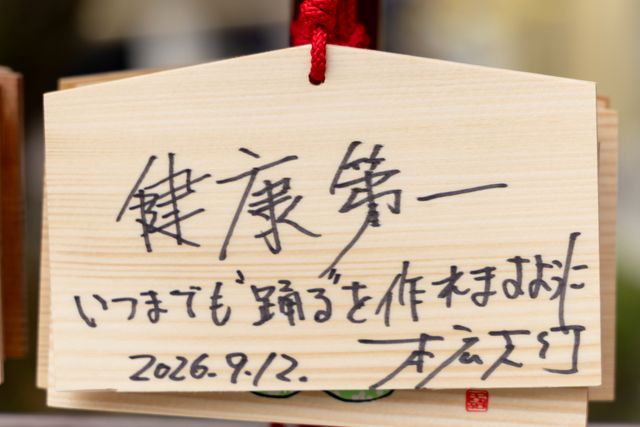 健康第一
いつまでも"踊る"を作れますように
2026.9.12. 本広克行